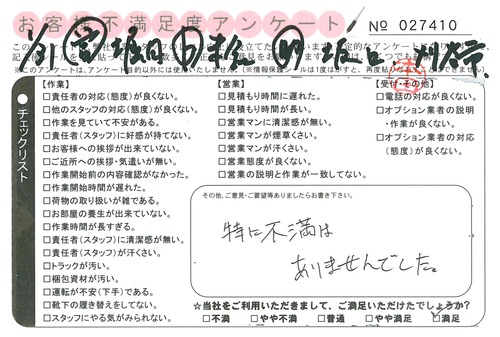 お客様不満足度アンケート
No 027410
※このアンケートは、アンケート目的以外には使用いたしません。(※情報保護シールは1度はがすと、再度貼りなおすことはできません)
チェックリスト
【作業】
□責任者の対応(態度)が良くない。
□他のスタッフの対応(態度)が良くない。
□作業を見ていて不安がある。
□責任者(スタッフ)に好感が持てない。
□お客様への挨拶が出来ていない。
□ご近所への挨拶・気遣いが無い。
□作業開始前の内容確認がなかった。
□作業開始時間が遅れた。
□荷物の取り扱いが雑である。
□お部屋の養生が出来ていない。
□作業時間が長すぎる。
□責任者(スタッフ)に清潔感が無い。
□責任者(スタッフ)が汗くさい。
□トラックが汚い。
□梱包資材が汚い。
□運転が不安(下手)である。
□靴下の履き替えをしてない。
□スタッフにやる気がみられない。
【営業】
□見積もり時間が長い。
□見積もり時間に遅れた。
□営業マンに清潔感が無い。
□営業マンが煙草くさい。
□営業マンが汗くさい。
□営業態度が良くない。
□営業の説明と作業が一致してない。
【受付・その他】
□電話の対応が良くない。
□オプション業者の説明
・作業が良くない。
□オプション業者の対応
(態度)が良くない。
その他、ご意見・ご要望等ありましたらお書き下さい。
特に不満は
ありませんでした。
☆当社をご利用いただきまして、ご満足いただけたでしょうか?
□不満 □やや不満 □普通 □やや満足 □満足